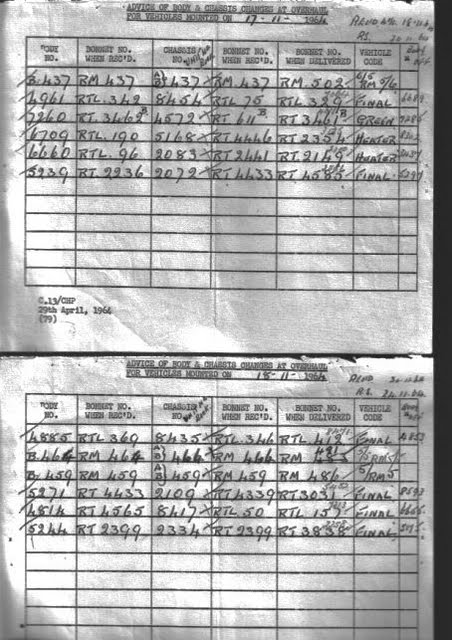 ADVICE OF BODY & CHASSIS CHANGES AT OVERHAUL
FOR VEHICLES MOUNTED ON 17-11-1964
BODY NO. BONNET NO. WHEN REC'D. CHASSIS NO. BONNET NO. WHEN REC'D. BONNET NO. WHEN DELIVERED VEHICLE CODE
B.437 RM 437 437 RM 437 RM 502 RM 5/6
4961 RTL 342 8454 RTL 75 RTL 329 FINAL
7260 RT 3462 4572 RT 611 RT 3461 GREEN
6709 RTL 190 5168 RT 4446 RT 2354 HEATER
6660 RTL 96 2083 RT 2441 RT 2149 HEATER
5239 RT 2236 2072 RT 4433 RT 4585 FINAL
C.13/CHP
29th April, 1964
(79)
ADVICE OF BODY & CHASSIS CHANGES AT OVERHAUL
FOR VEHICLES MOUNTED ON 18-11-1964
BODY NO. BONNET NO. WHEN REC'D. CHASSIS NO. BONNET NO. WHEN REC'D. BONNET NO. WHEN DELIVERED VEHICLE CODE
4885 RTL 369 8435 RTL 346 RTL 412 FINAL
B.466 RM 466 466 RM 466 RM
B.459 RM 459 459 RM 459 RM 486 5/RM5
5271 RT 4433 2109 RT 4339 RT 3031 FINAL
4814 RT 4565 8417 RTL 50 RTL 157 FINAL
5244 RT 2399 2334 RT 2399 RT 3838 FINAL